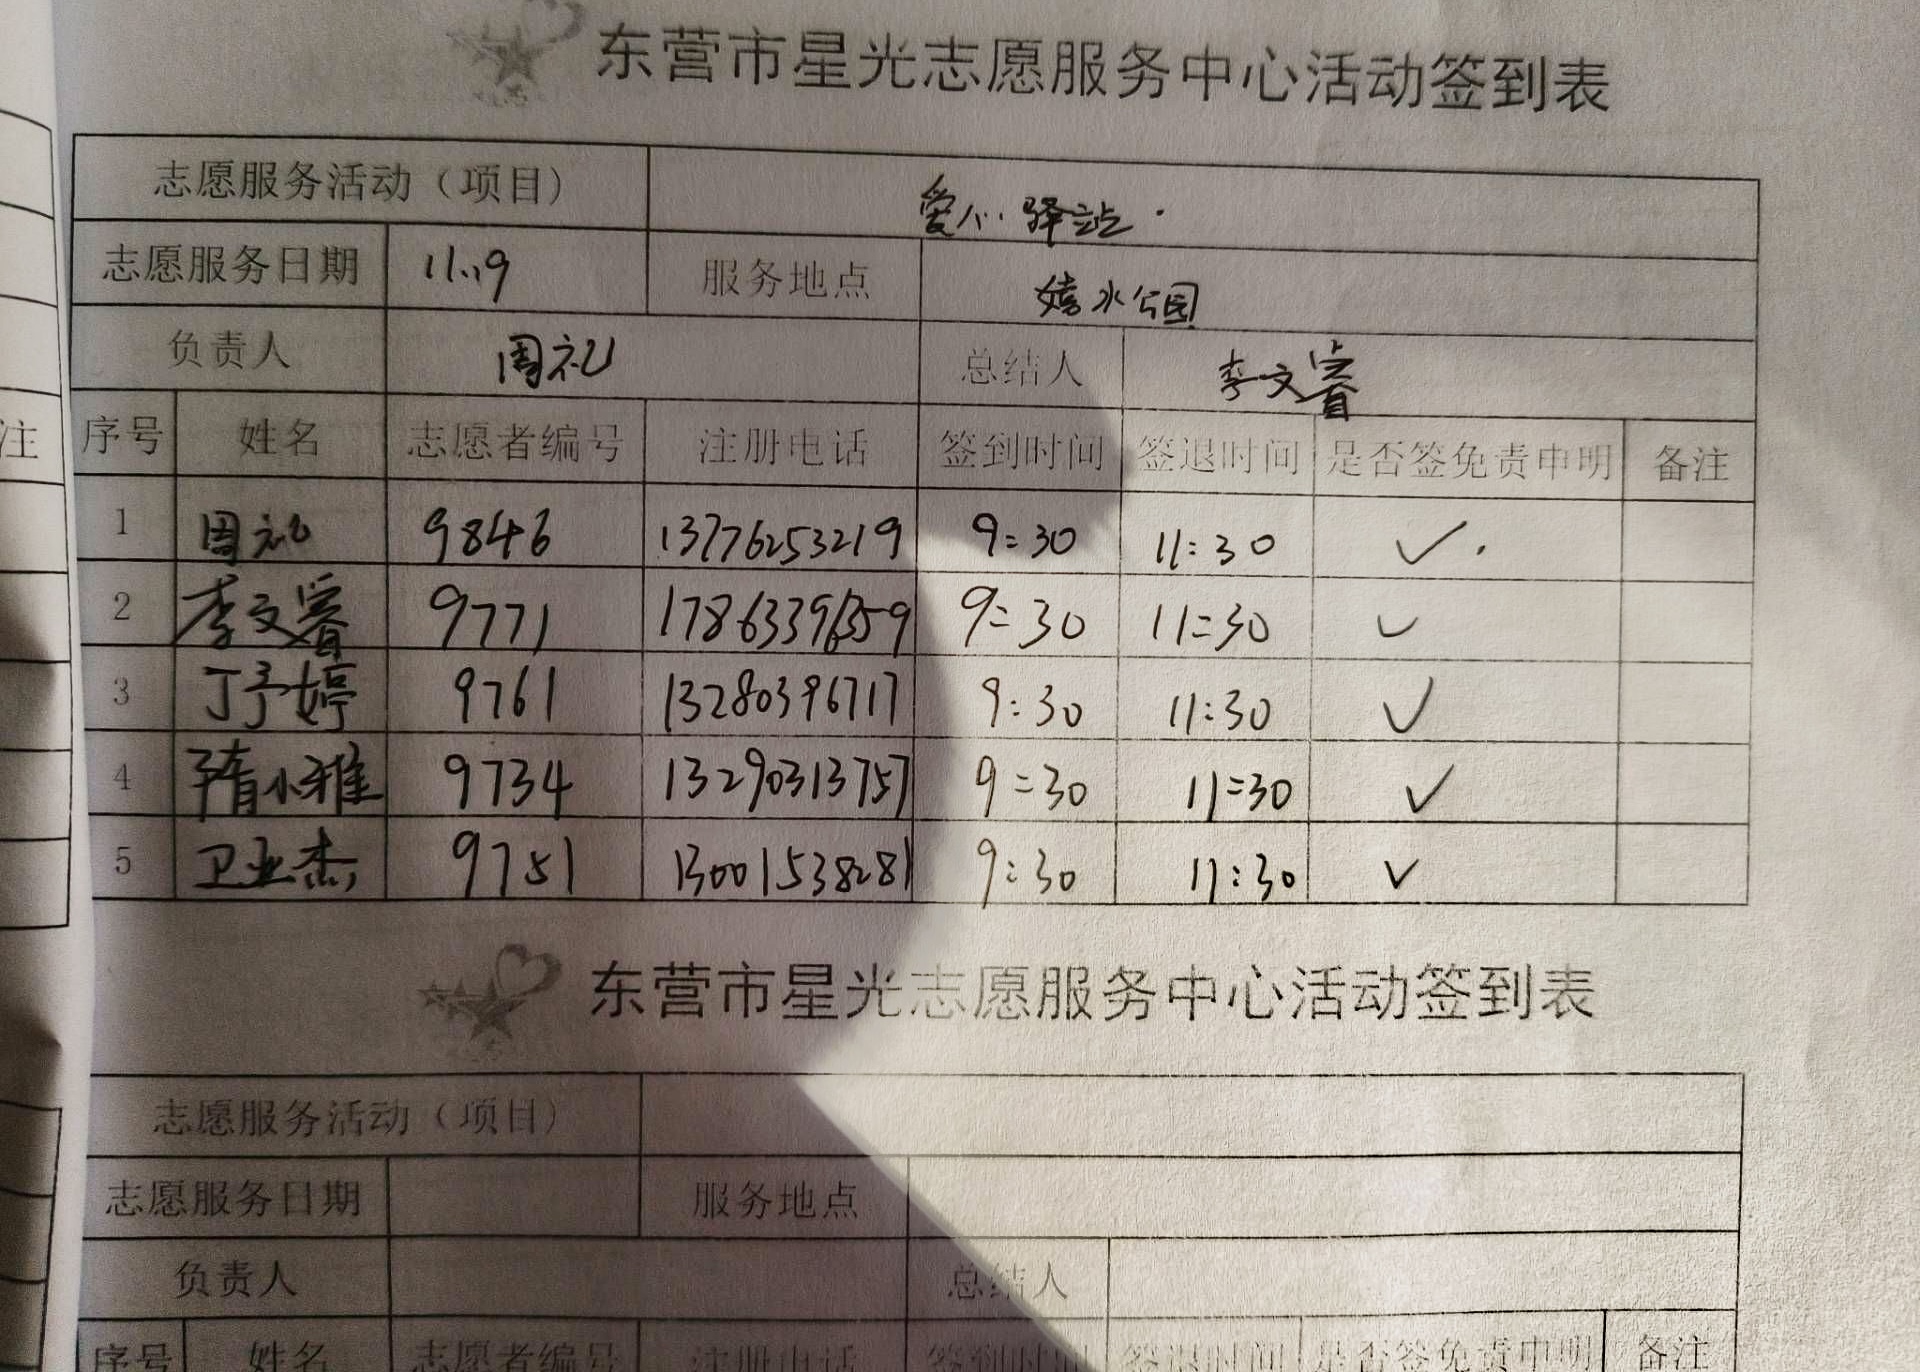 东营市星光志愿服务中心活动签到表
志愿服务活动（项目） 爱心驿站.
志愿服务日期 11.19 服务地点 嬉水公园
负责人 周礼 总结人 李文睿
注 序号 姓名 志愿者编号 注册电话 签到时间 签退时间 是否签免责申明 备注
1 周礼 9846 13776253219 9:30 11:30 ✓.
2 李文睿 9771 9:30 11:30 ✓
3 丁予婷 9761 13280396717 9:30 11:30 ✓
4 隋小雅 9734 13290313757 9:30 11:30 ✓
5 卫亚杰 9751 13001538281 9:30 11:30 ✓
东营市星光志愿服务中心活动签到表
志愿服务活动（项目）
志愿服务日期 服务地点
负责人 总结人
序号 姓名 志愿者编号 注册电话 签到时间 签退时间 是否签免责申明 备注